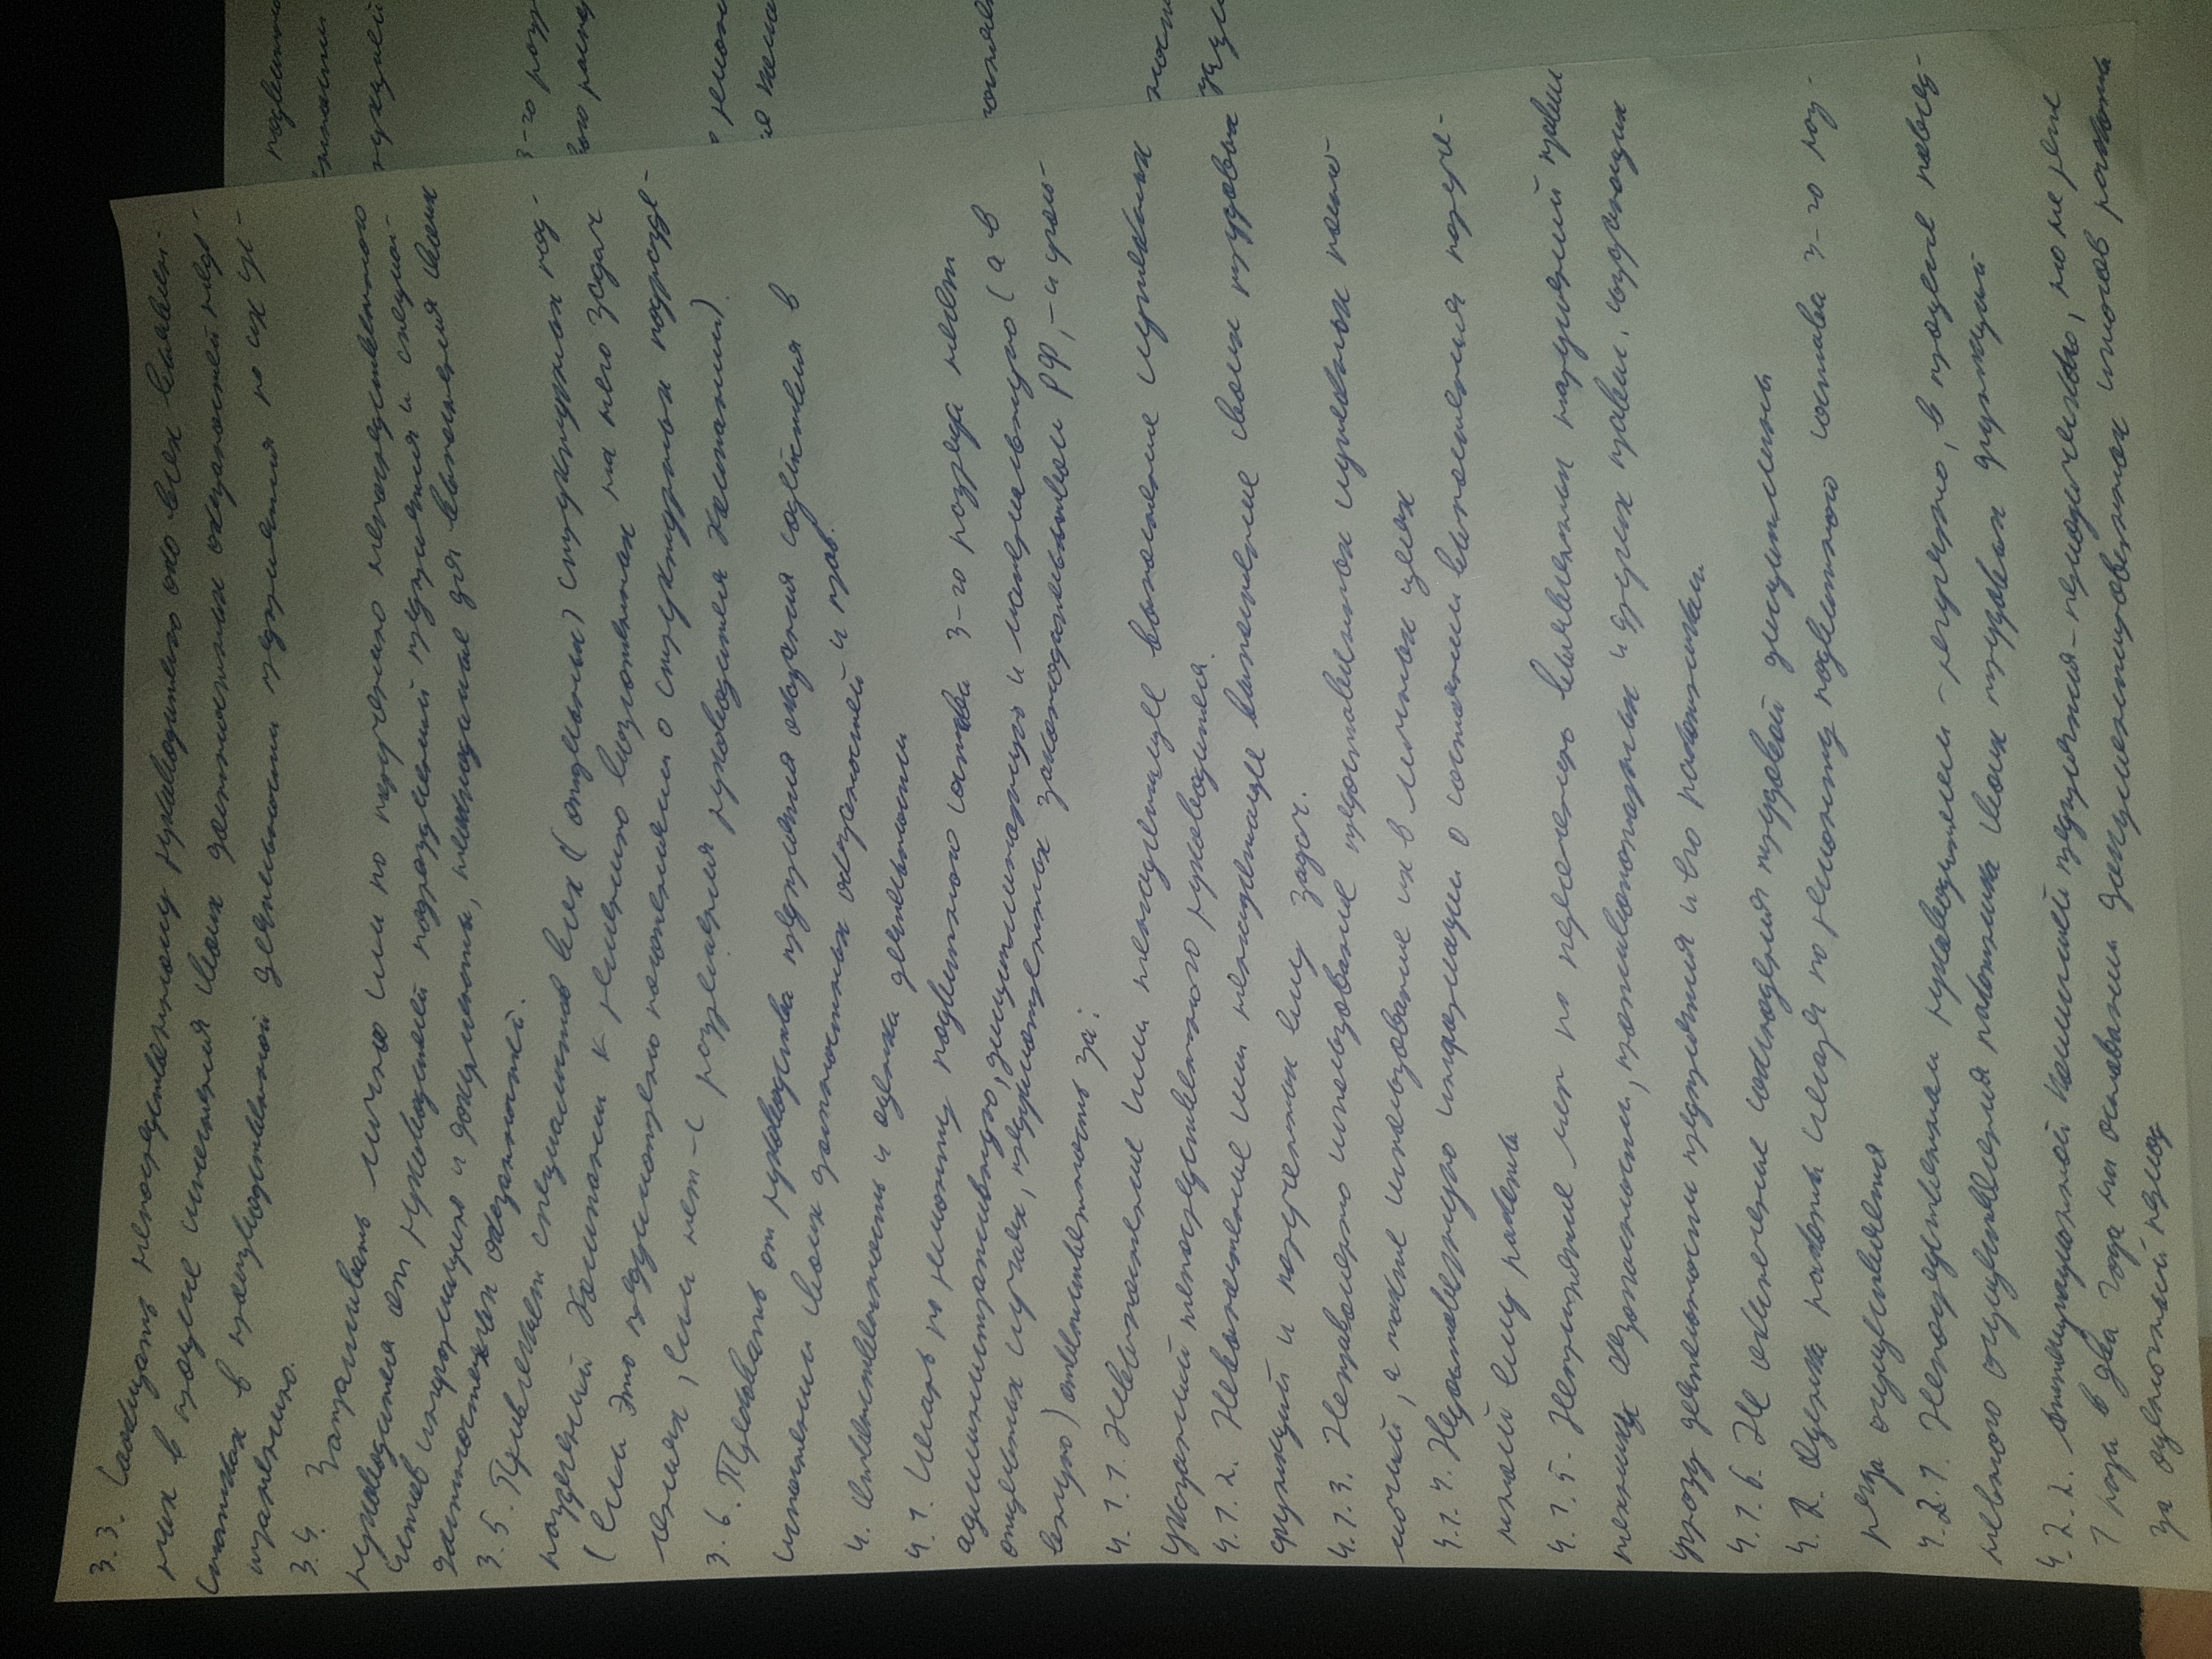 3.3. Сообщать непосредственному руководителю обо всех выявлен-
ных в процессе исполнения своих должностных обязанностей недо-
статках в производственной деятельности предприятия по их ус-
транению.
3.4. Запрашивать лично или по поручению непосредственного
руководителя от руководителей подразделений предприятия и специа-
листов информацию и документы, необходимые для выполнения своих
должностных обязанностей.
3.5. Привлекать специалистов всех (отдельных) структурных под-
разделений Компании к решению возложенных на него задач
(если это предусмотрено положениями о структурных подразде-
лениях, если нет - с разрешения руководителя Компании).
3.6. Требовать от руководства предприятия оказания содействия в
исполнении своих должностных обязанностей и прав.
4. Ответственность и оценка деятельности
4.1. Слесарь по ремонту подвижного состава 3-го разряда несет
административную, дисциплинарную и материальную (а в
отдельных случаях, предусмотренных законодательством РФ, - и уголо-
вную) ответственность за:
4.1.1. Невыполнение или ненадлежащее выполнение служебных
указаний непосредственного руководителя.
4.1.2. Невыполнение или ненадлежащее выполнение своих трудовых
функций и порученных ему задач.
4.1.3. Неправомерно использование предоставленных служебных полно-
мочий, а также использование их в личных целях
4.1.4. Недостоверную информацию о состоянии выполнения поруче-
нной ему работы
4.1.5. Непринятие мер по пресечению выявленных нарушений правил
техники безопасности, противопожарных и других правил, создающих
угрозу деятельности предприятия и его работникам.
4.1.6. Не обеспечение соблюдения трудовой дисциплины
4.2. Оценка работы слесаря по ремонту подвижного состава 3-го раз-
ряда осуществляется
4.2.1. Непосредственным руководителем - регулярно, в процессе повсед-
невного осуществления работника своих трудовых функций
4.2.2. Аттестационной комиссией предприятия - периодически, но не реже
1 раза в два года на основании документированных итогов работы
за оценочный период